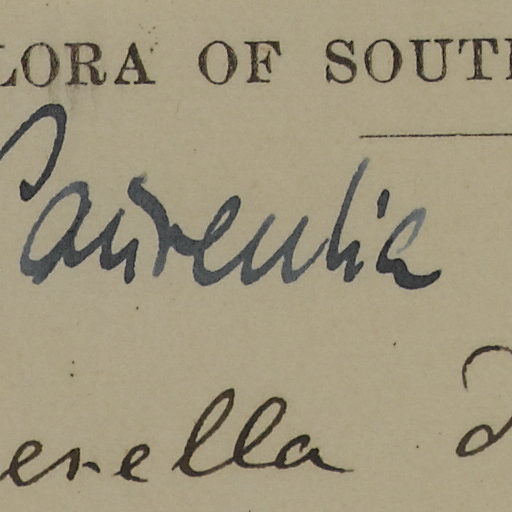 LORA OF SOUTH
Laurentia
erella D